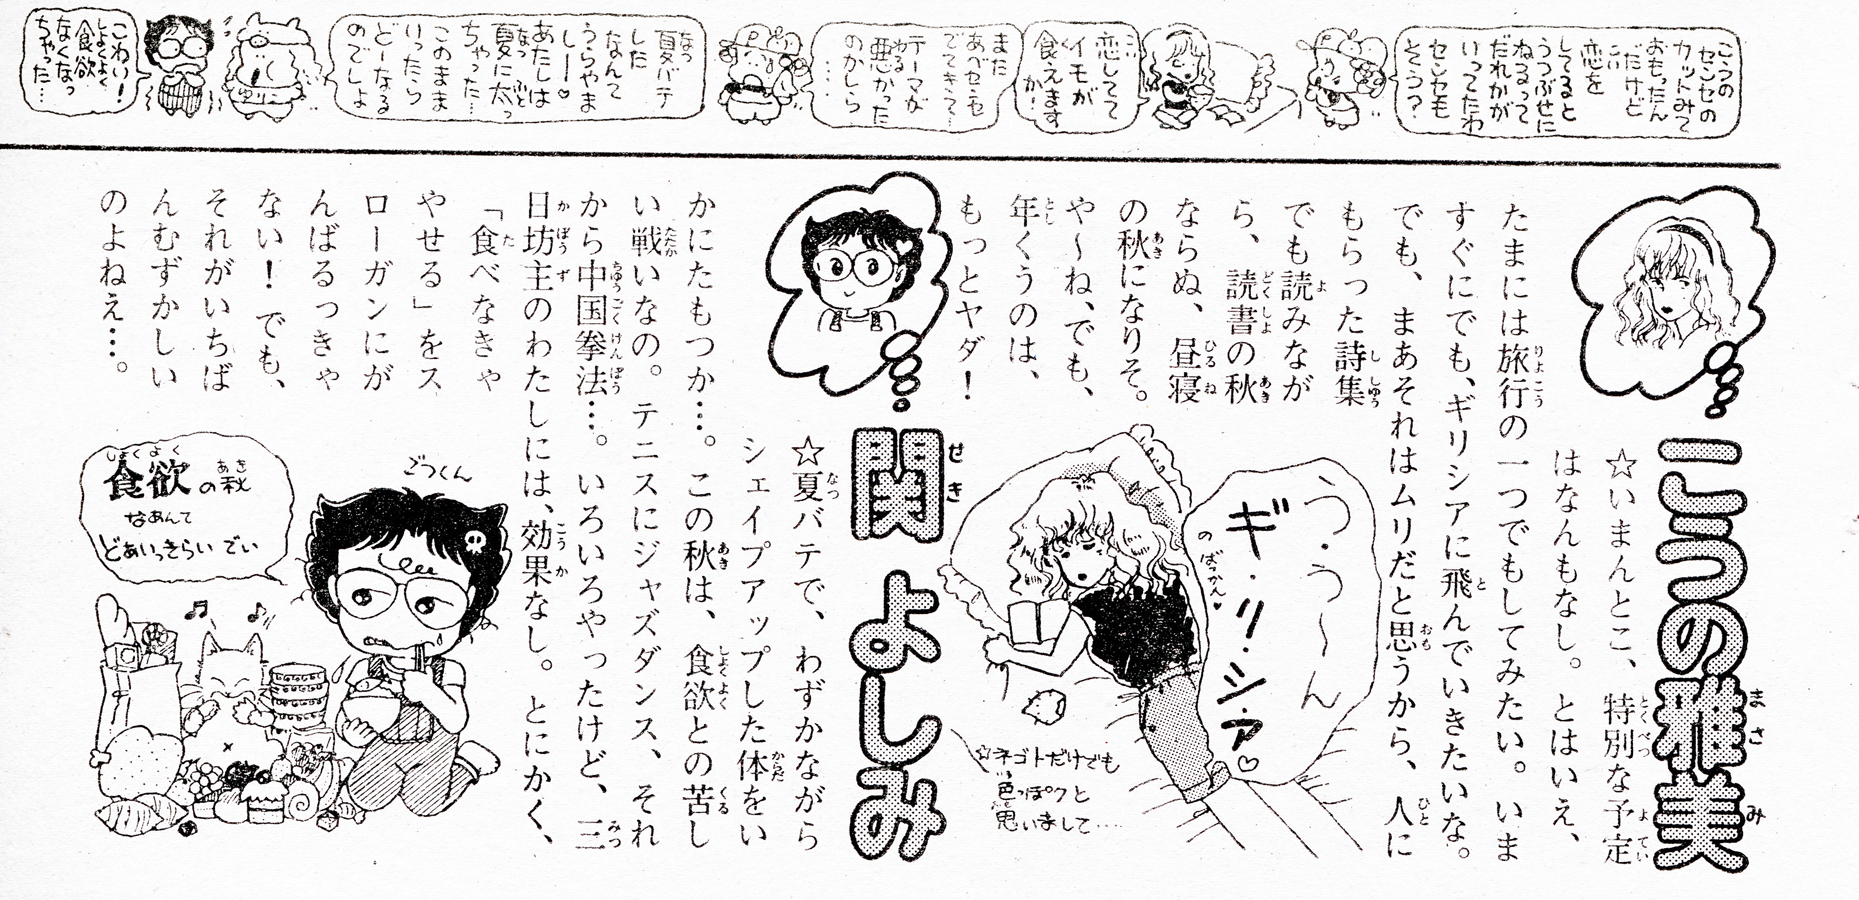 こうの
センセの
カットみて
おもったん
だけど
恋を
してると
うつぶせに
ねるって
だれかが
いってたわ
センセも
そう?
恋してて
イモが
食えます
か!
また
あべセも
でてきて…
テーマが
悪かった
のかしら
……
夏バテ
した
なんて
うらやま
しー♡
あたしは
夏に太っ
ちゃった…
このまま
いったら
どーなる
のでしょ
こわい!
食欲
なくなっ
ちゃった…
こうの雅美
☆いまんとこ、特別な予定
はなんもなし。とはいえ、
たまには旅行の一つでもしてみたい。いま
すぐにでも、ギリシアに飛んでいきたいな。
でも、まあそれはムリだと思うから、人に
もらった詩集
でも読みなが
ら、読書の秋
ならぬ、昼寝
の秋になりそ。
や〜ね、でも、
年くうのは、
もっとヤダ!
う・う〜ん
ギ・リ・シ・ア♡
のばっかん♥
☆ネゴトだけでも
色っぽクと
思いまして……
関よしみ
☆夏バテで、わずかながら
シェイプアップした体をい
かにたもつか…。この秋は、食欲との苦し
い戦いなの。テニスにジャズダンス、それ
から中国拳法…。いろいろやったけど、三
日坊主のわたしには、効果なし。とにかく、
「食べなきゃ
やせる」をス
ローガンにが
んばるっきゃ
ない!でも、
それがいちば
んむずかしい
のよねえ…。
ごっくん
食欲の秋
なあんて
どあいっきらいでい